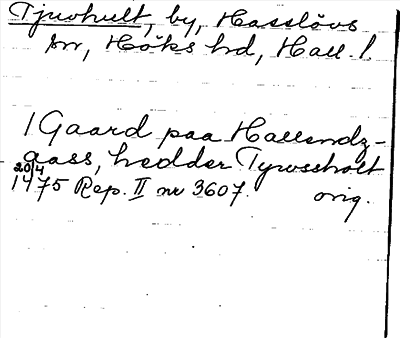 Tjuvhult, by, Hasslövs
sn, Höks hd, Hall. l.
1 Gaard paa Hallendz-
aass, hedder Tywssholt
20/4 1475 Rep. II nr 3607. orig.